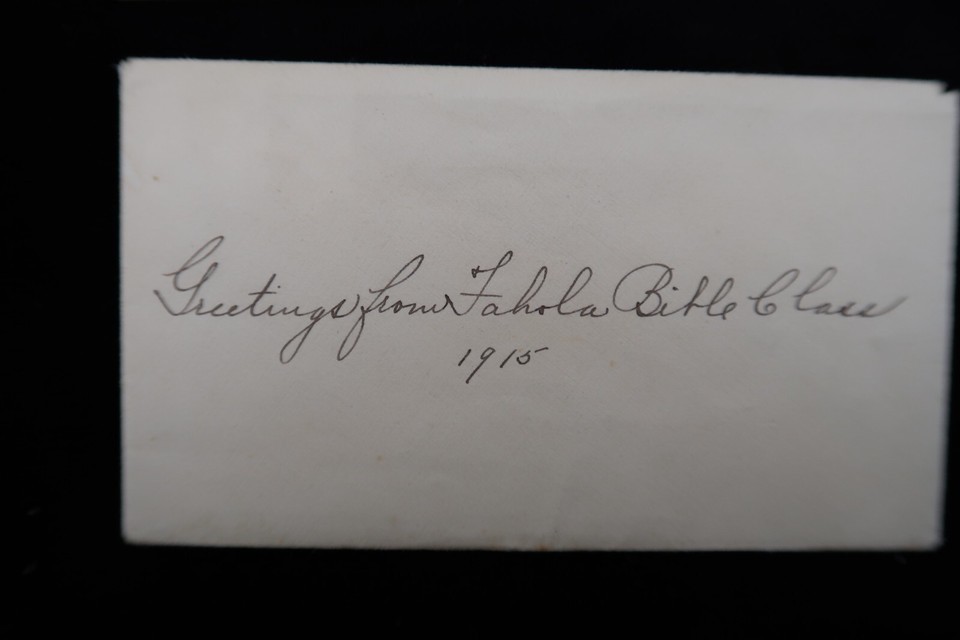 Greetings from Fahola Bible Class
1915